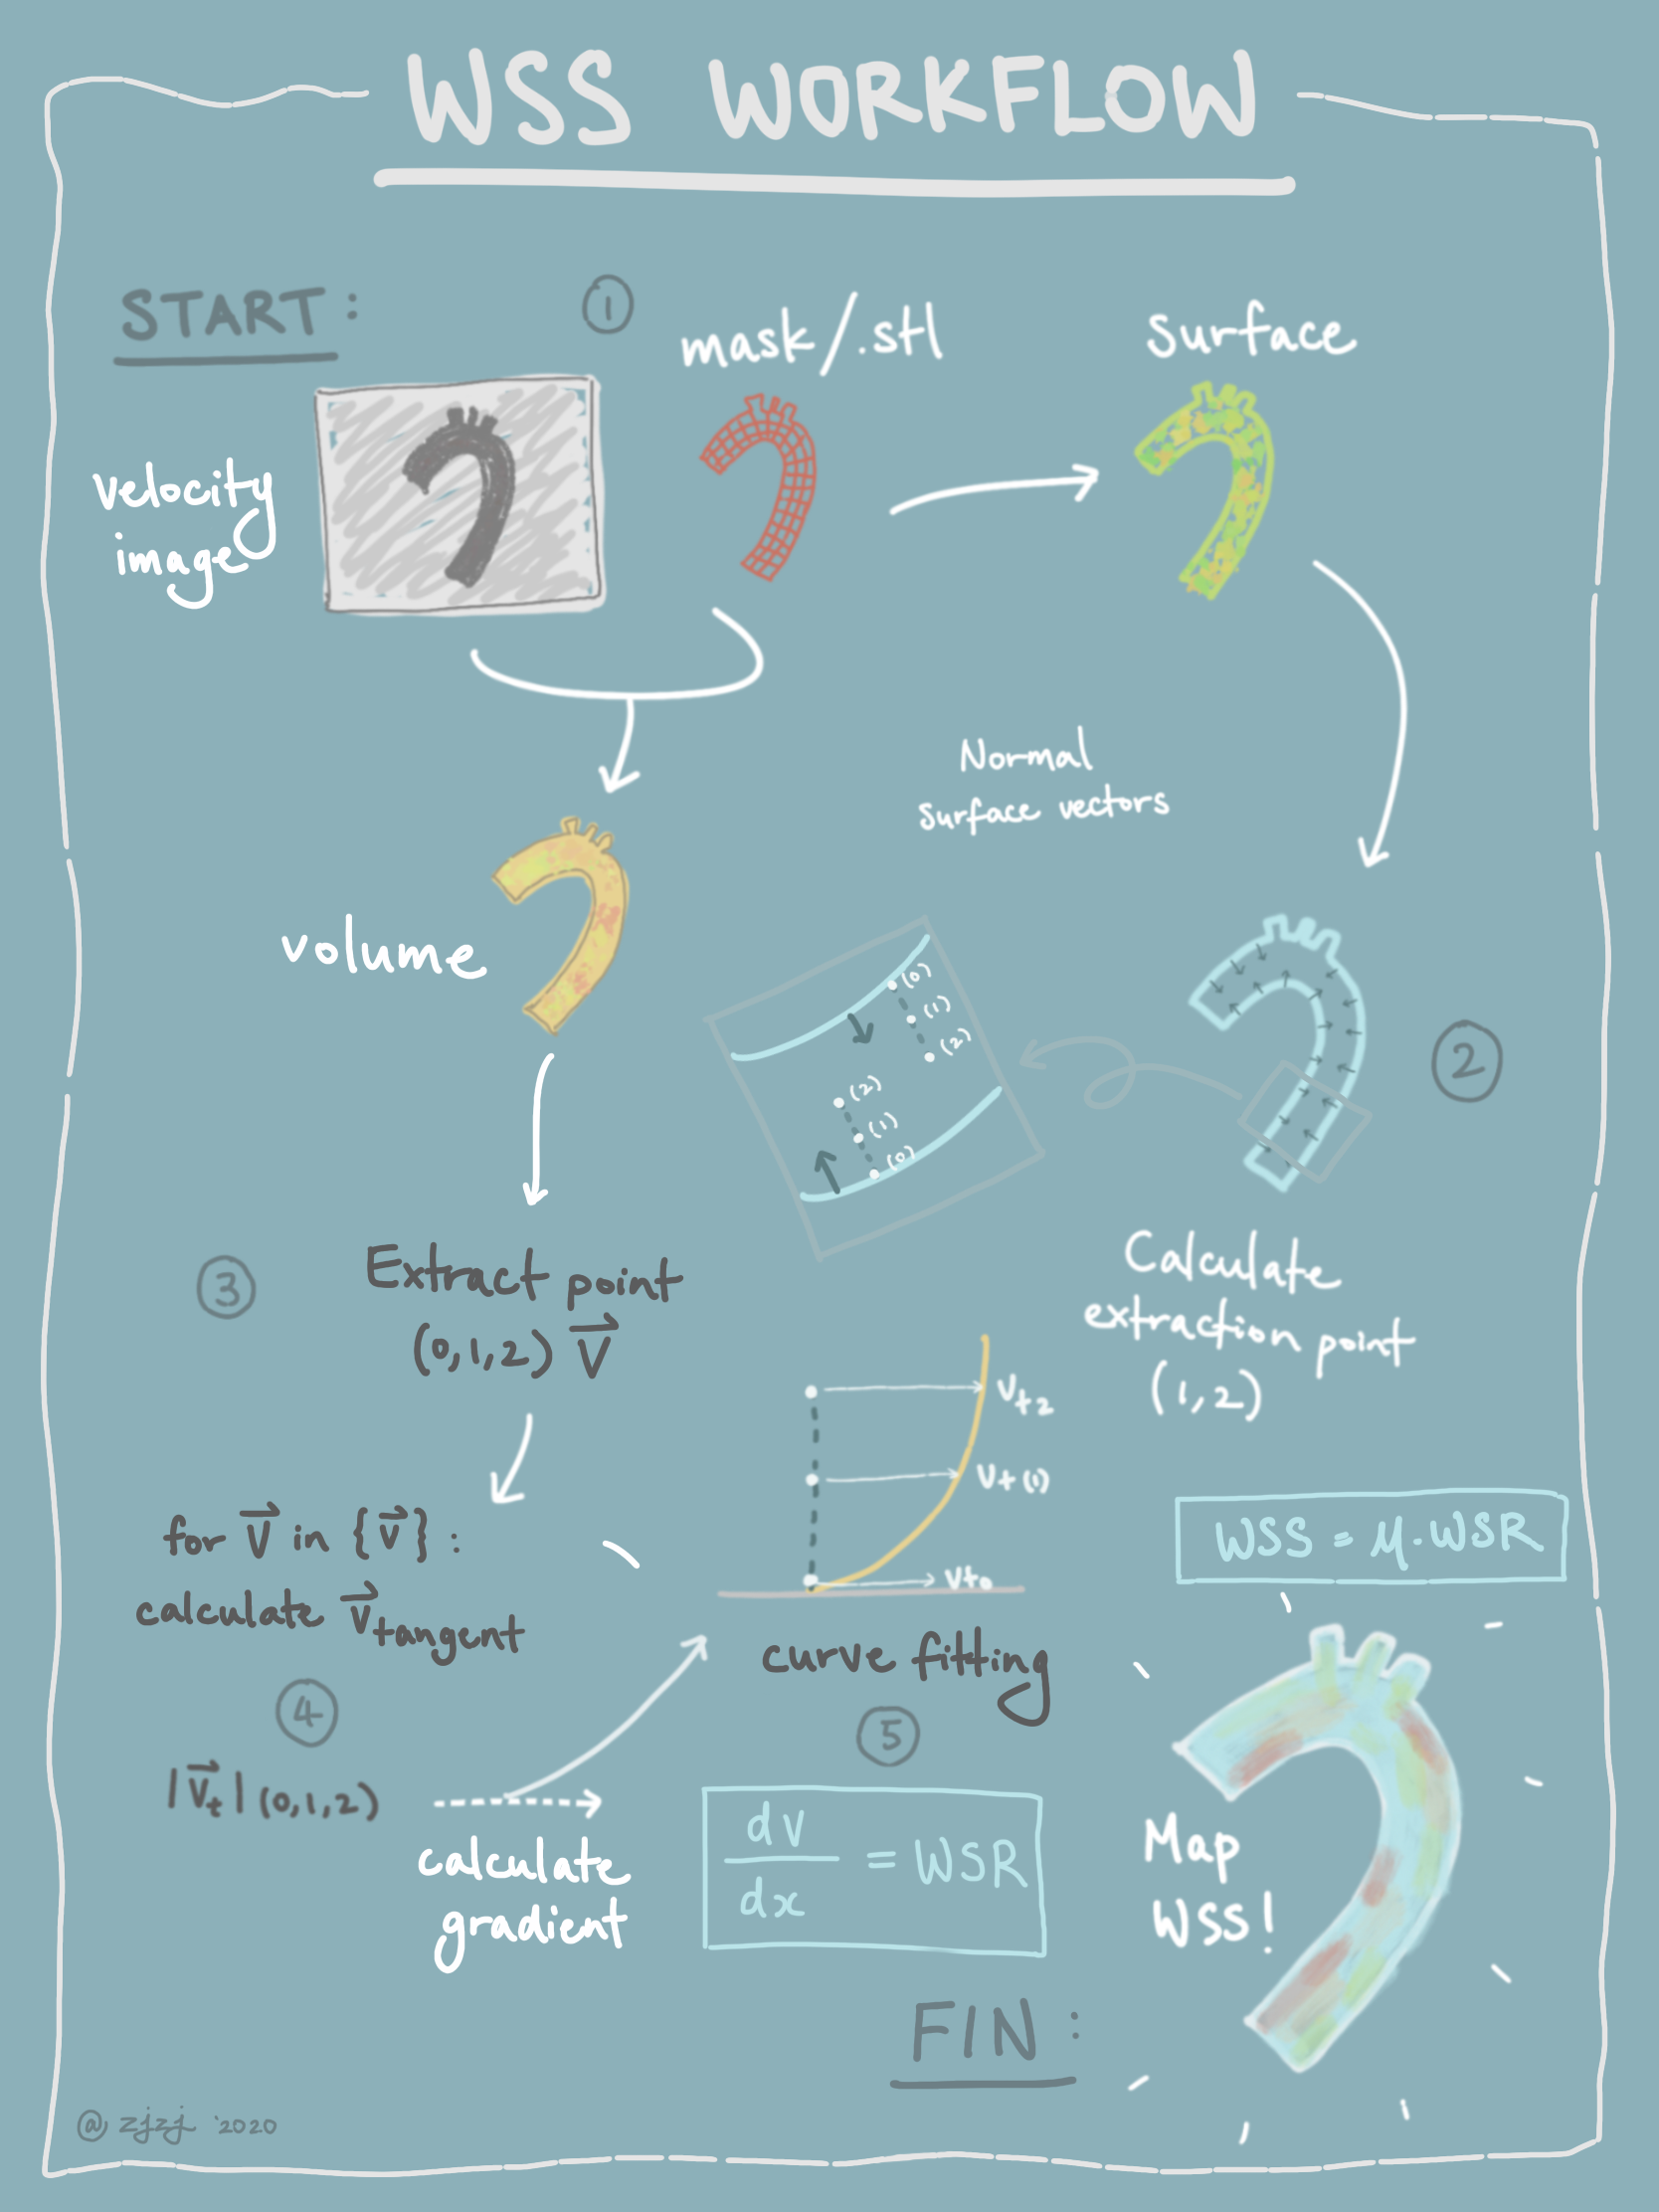 WSS WORKFLOW
START:
①
mask/.stl
surface
velocity
image
Normal
surface vectors
volume
(0)
(1)
(2)
(2)
(1)
(0)
②
③
Extract point
(0,1,2) V⃗
Calculate
extraction point
(1,2)
Vt2
Vt(1)
Vt0
for V⃗ in {V⃗}:
calculate V⃗tangent
curve fitting
WSS = μ.WSR
④
⑤
|V⃗t|(0,1,2)
calculate
gradient
dv
dx
= WSR
Map
WSS!
FIN:
@zjzj '2020